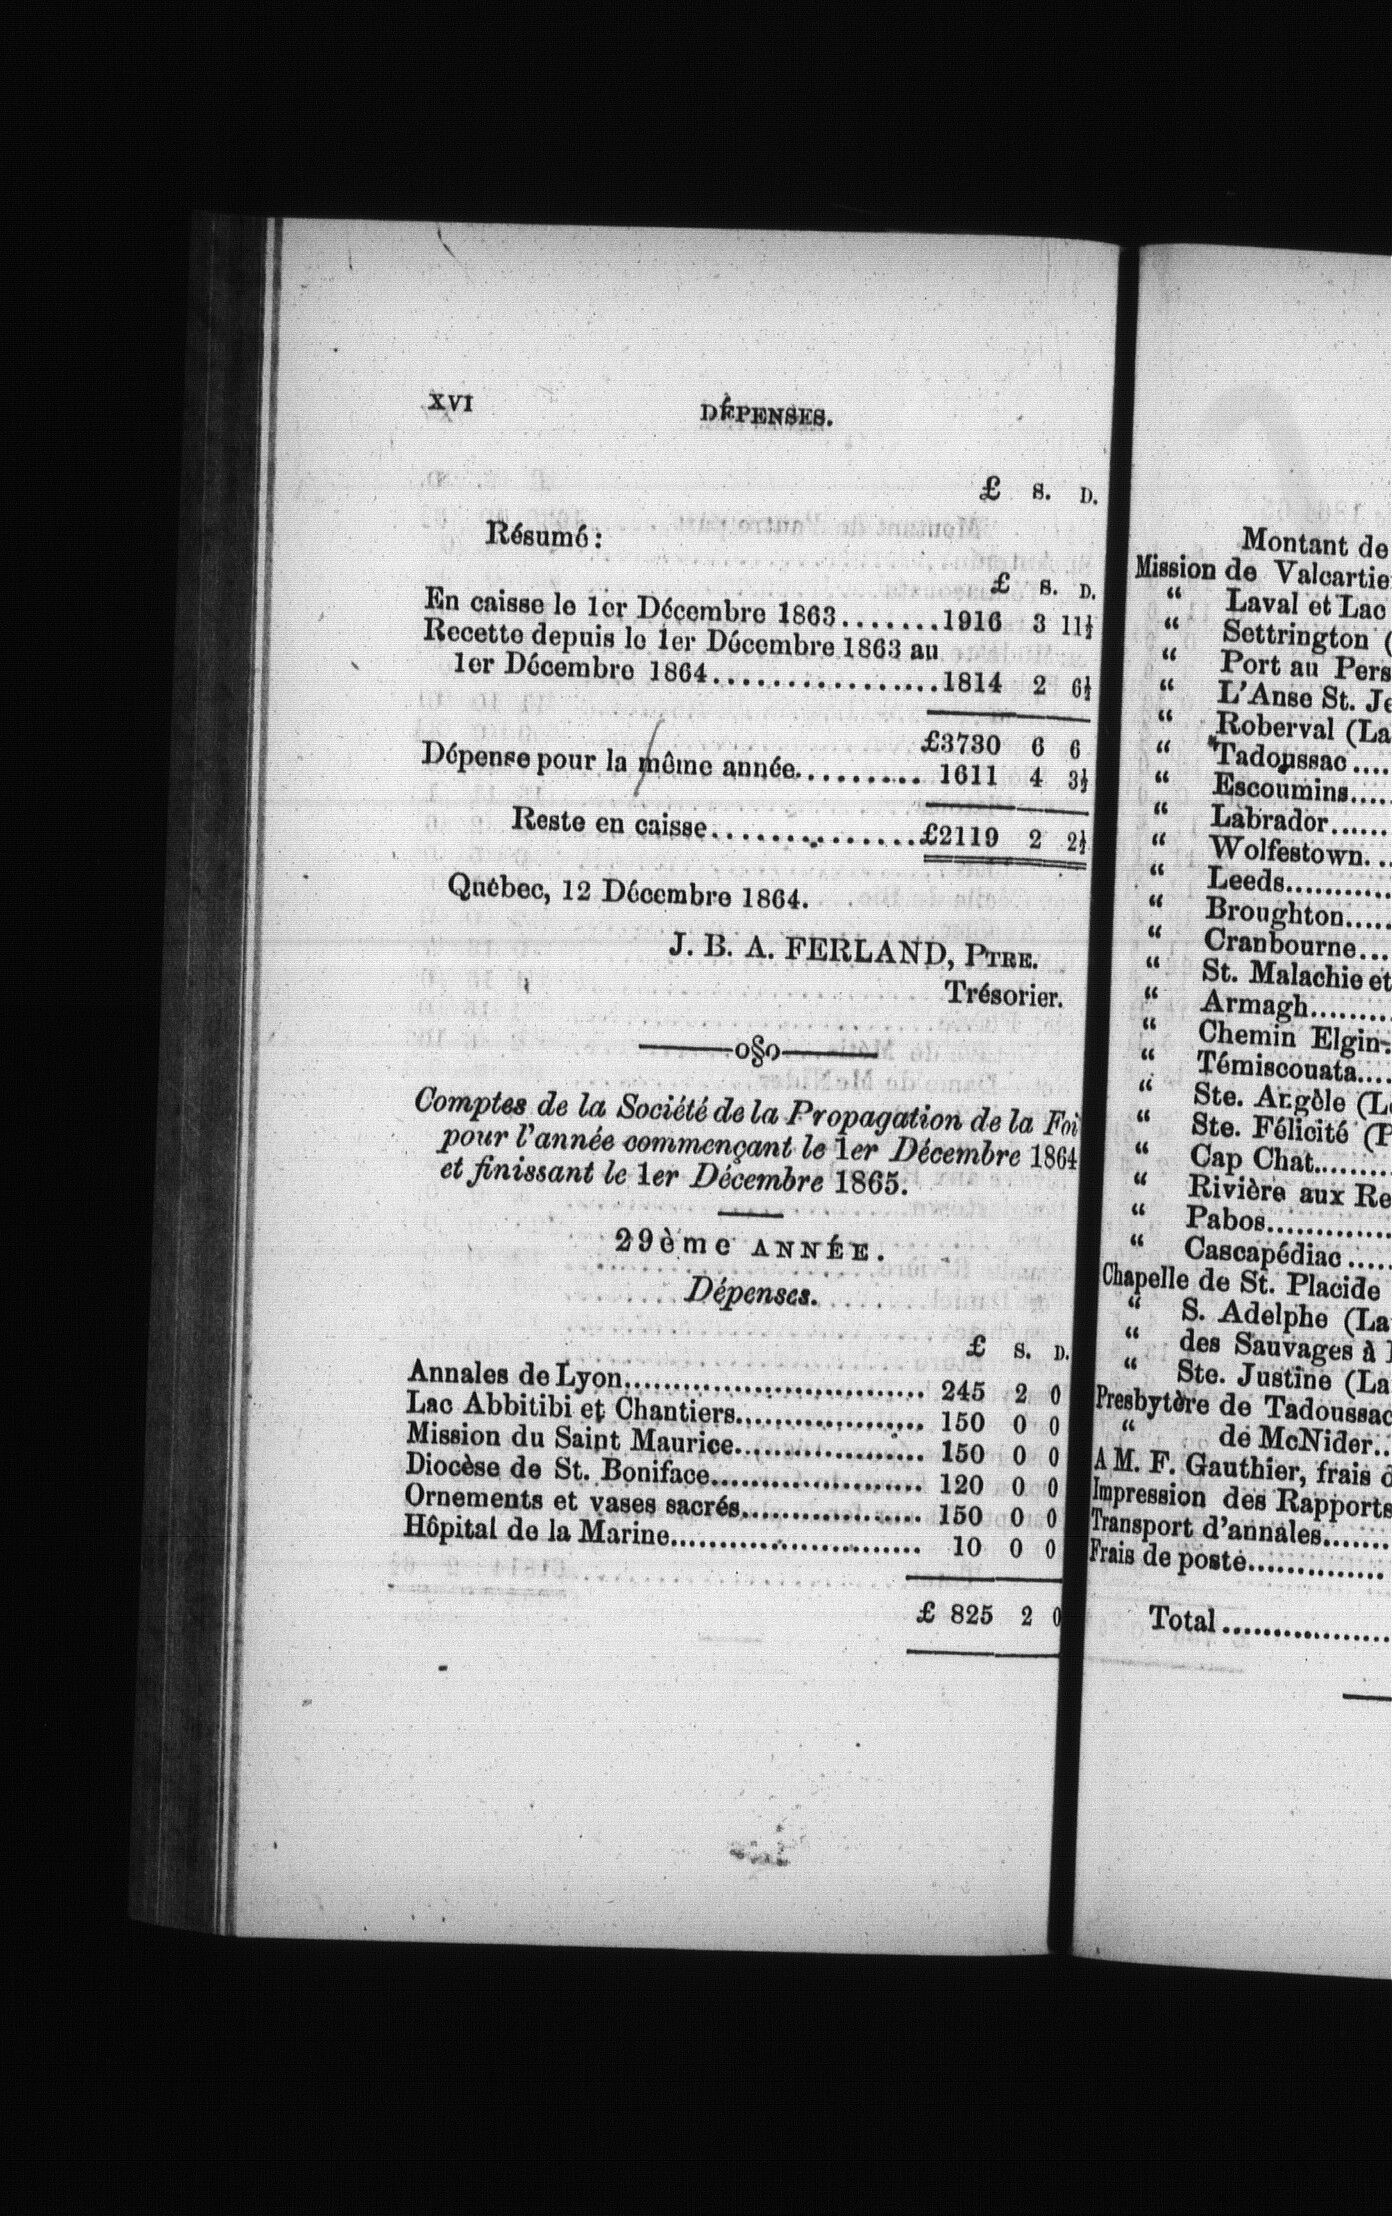 XVI DÉPENSES.
£ S. D.
Résumé :
£ S. D.
En caisse le 1er Décembre 1863........1916 3 11½
Recette depuis le 1er Décembre 1863 au
1er Décembre 1864.................1814 2 6½
£3730 6 6
Dépense pour la même année.......... 1611 4 3½
Reste en caisse................£2119 2 2½
Québec, 12 Décembre 1864.
J. B. A. FERLAND, PTRE.
Trésorier.
o§o
Comptes de la Société de la Propagation de la Foi
pour l'année commençant le 1er Décembre 1864
et finissant le 1er Décembre 1865.
29ème ANNÉE.
Dépenses.
£ S. D.
Annales de Lyon............................. 245 2 0
Lac Abbitibi et Chantiers................... 150 0 0
Mission du Saint Maurice................... 150 0 0
Diocèse de St. Boniface..................... 120 0 0
Ornements et vases sacrés.................. 150 0 0
Hôpital de la Marine......................... 10 0 0
£ 825 2 0
Montant de
Mission de Valcartie
“ Laval et Lac
“ Settrington (
“ Port au Pers
“ L'Anse St. Je
“ Roberval (La
“ Tadoussac....
“ Escoumins.....
“ Labrador......
“ Wolfestown...
“ Leeds...........
“ Broughton.....
“ Cranbourne...
“ St. Malachie et
“ Armagh.........
“ Chemin Elgin.
“ Témiscouata....
“ Ste. Argèle (Le
“ Ste. Félicité (P
“ Cap Chat........
“ Rivière aux Re
“ Pabos............
“ Cascapédiac .....
Chapelle de St. Placide
“ S. Adelphe (La
“ des Sauvages à
“ Ste. Justine (La
Presbytère de Tadoussac
“ de McNider..
A M. F. Gauthier, frais d
Impression des Rapports
Transport d'annales.......
Frais de poste..............
Total .................